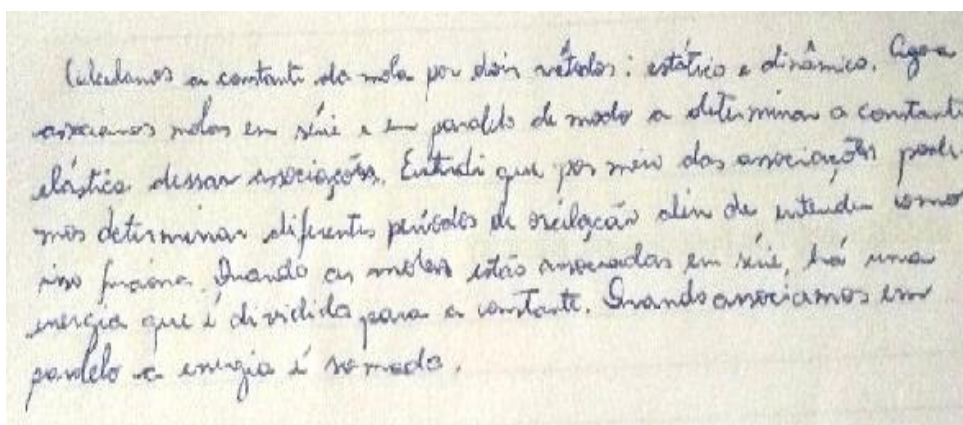 Calculamos a constante da mola por dois métodos: estático e dinâmico. Agora
associamos molas em série e em paralelo de modo a determinar a constante
elástica dessas associações. Entendi que por meio das associações pode-
mos determinar diferentes períodos de oscilação além de entender como
isso funciona. Quando as molas estão associadas em série, há uma
energia que é dividida para a constante. Quando associamos em
paralelo a energia é somada.